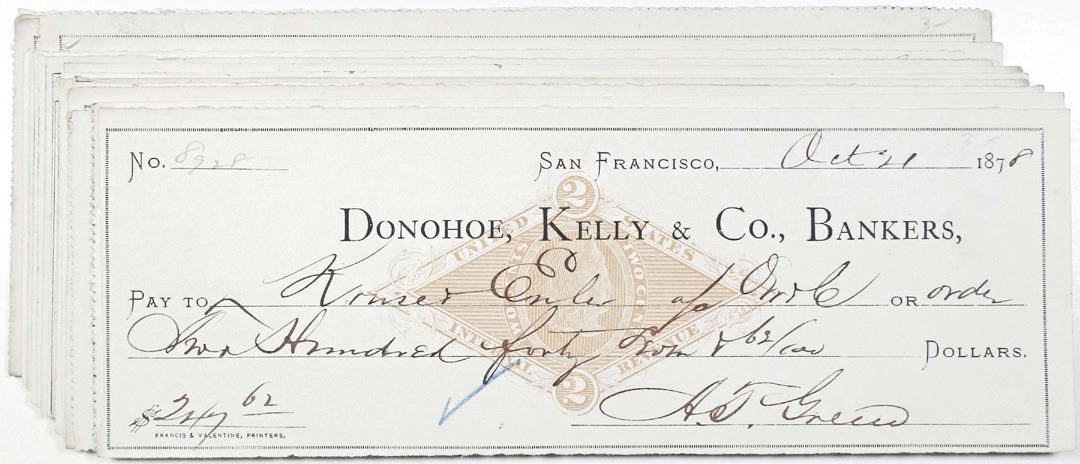 No. 8928 San Francisco, Oct 21 1878
Donohoe, Kelly & Co., Bankers,
Pay to or order
Two Hundred forty & 62/100 Dollars.
$247 62
H. T. Green
Francis & Valentine, Printers.
United States
Two Cents
Internal Revenue
2
2